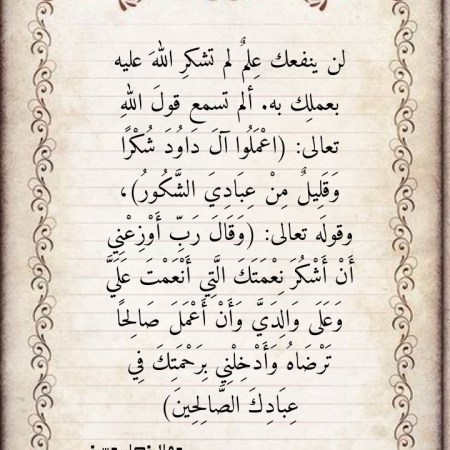 لن ينفعك عِلمٌ لم تشكرِ اللهَ عليه
بعملِك به. ألم تسمع قولَ اللهِ
تعالى: (اعْمَلُوا آلَ دَاوُدَ شُكْرًا
وَقَلِيلٌ مِنْ عِبَادِيَ الشَّكُورُ)،
وقولَه تعالى: (وَقَالَ رَبِّ أَوْزِعْنِي
أَنْ أَشْكُرَ نِعْمَتَكَ الَّتِي أَنْعَمْتَ عَلَيَّ
وَعَلَى وَالِدَيَّ وَأَنْ أَعْمَلَ صَالِحًا
تَرْضَاهُ وَأَدْخِلْنِي بِرَحْمَتِكَ فِي
عِبَادِكَ الصَّالِحِينَ)